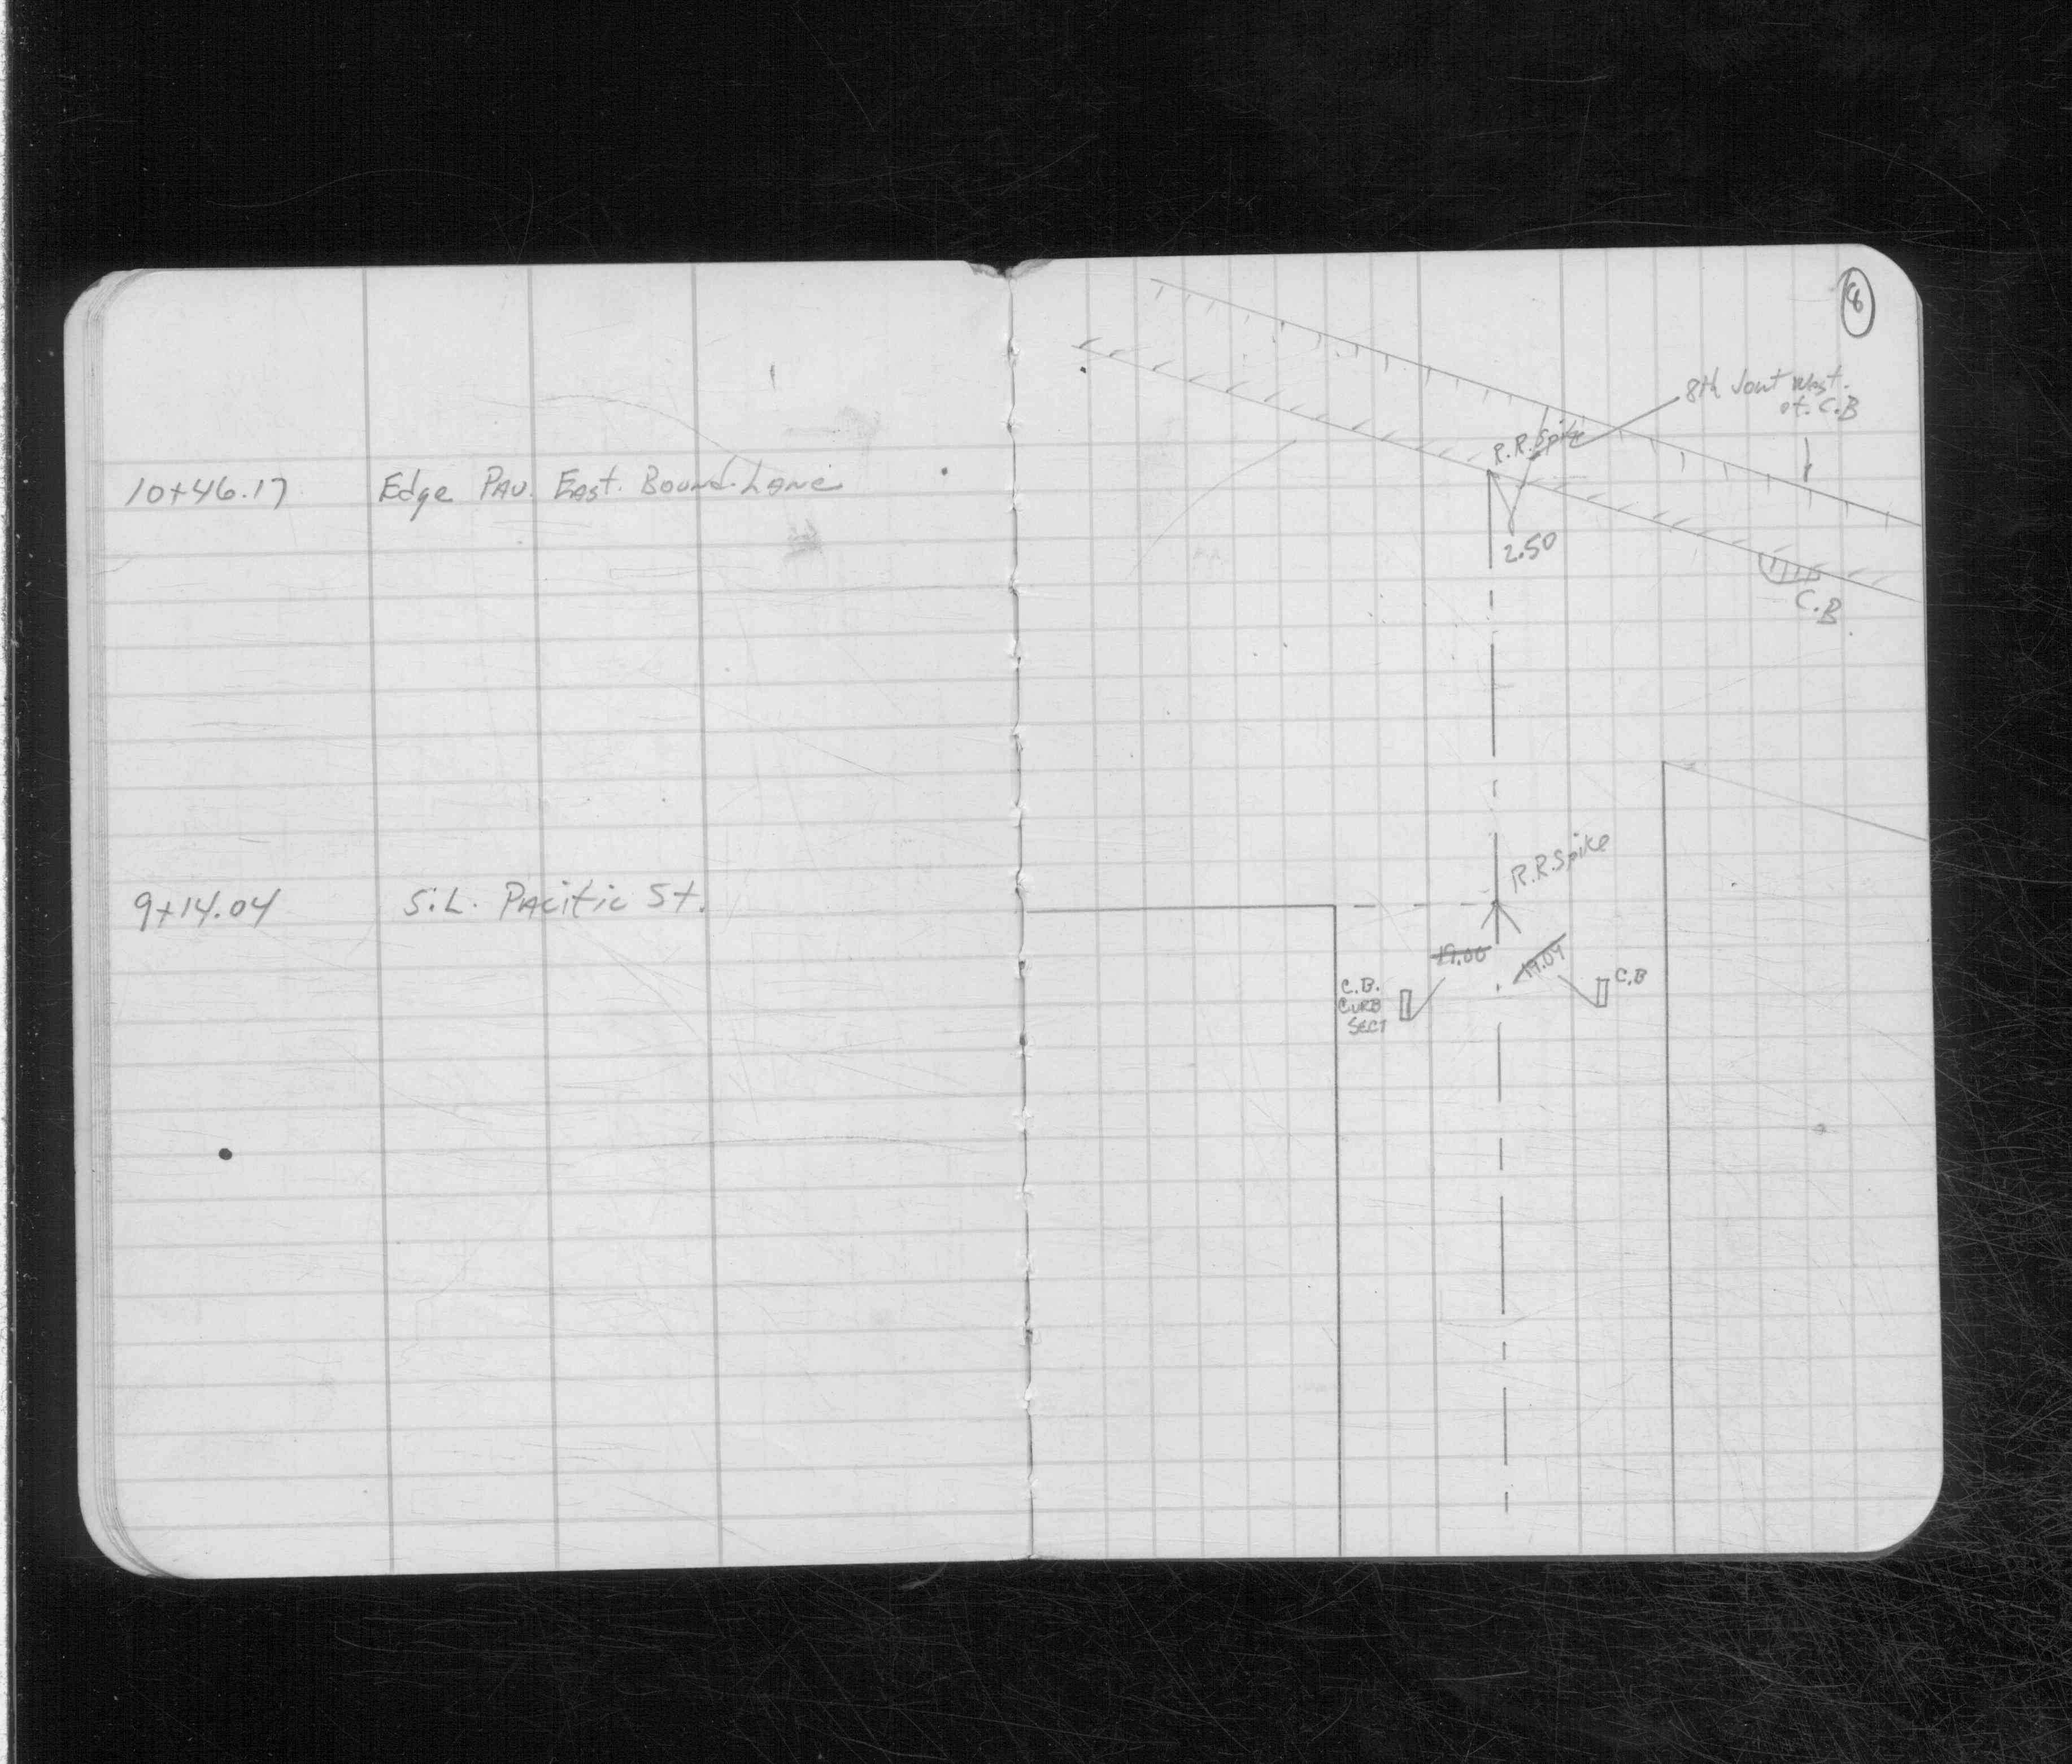 10+46.17 Edge Pav. East. Bound. Lane
9+14.04 S.L. Pacific St.
8
8th Joint West.
of. C.B
R.R. Spike
2.50
C.B
R.R. Spike
19.00
19.09
C.B.
CURB
SECT
C.B